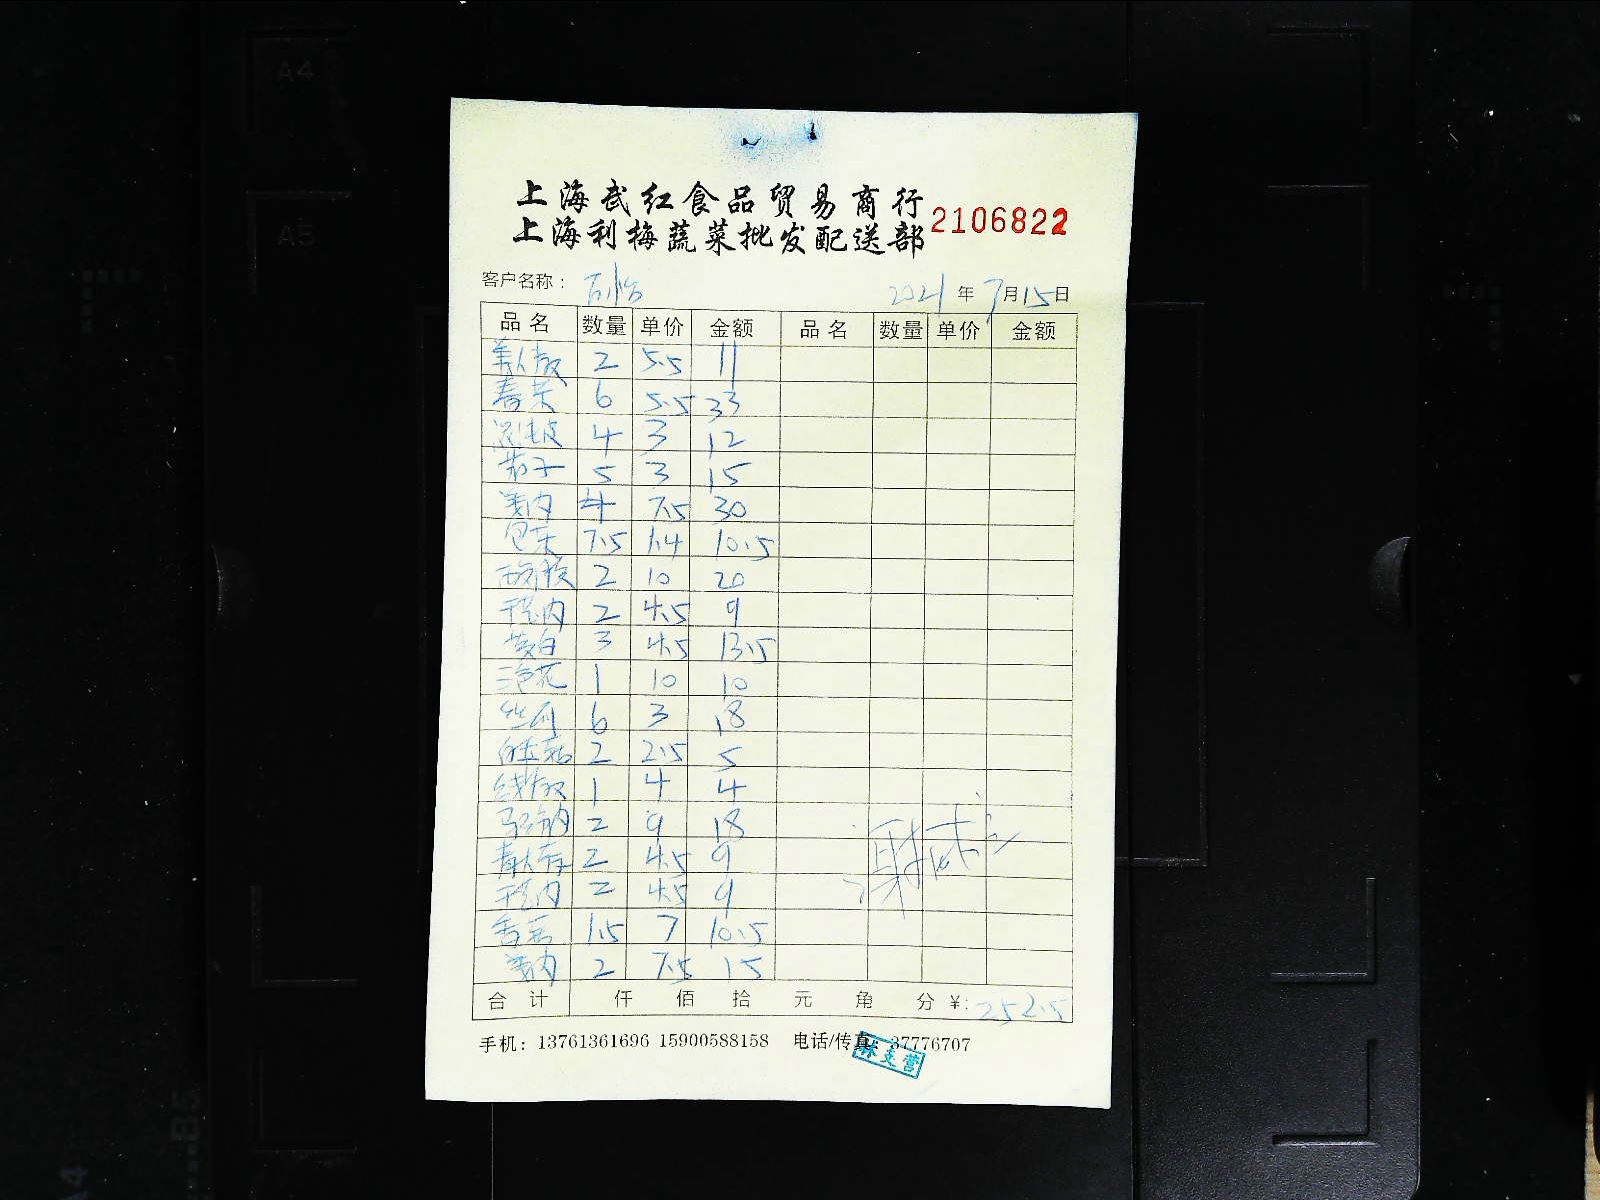 上海武红食品贸易商行
上海利梅蔬菜批发配送部 2106822
客户名称: 百怡 2021年7月15日
品名 数量 单价 金额 品名 数量 单价 金额
美人椒 2 5.5 11
春菜 6 5.5 33
4 3 12
茄子 5 3 15
4 7.5 30
包菜 7.5 1.4 10.5
2 10 20
2 4.5 9
茭白 3 4.5 13.5
三色花 1 10 10
丝瓜 6 3 18
2 2.5 5
线椒 1 4 4
2 9 18
2 4.5 9
2 4.5 9
1.5 7 10.5
2 7.5 15
合计 仟 佰 拾 元 角 分 ¥: 252.5
手机: 13761361696 15900588158 电话/传真: 37776707